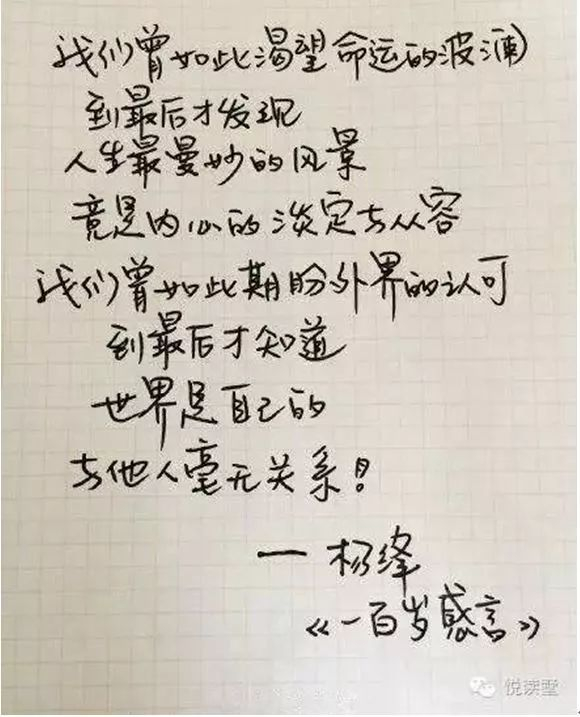 我们曾如此渴望命运的波澜
到最后才发现
人生最曼妙的风景
竟是内心的淡定与从容
我们曾如此期盼外界的认可
到最后才知道
世界是自己的
与他人毫无关系！
— 杨绛
《一百岁感言》
悦读墅